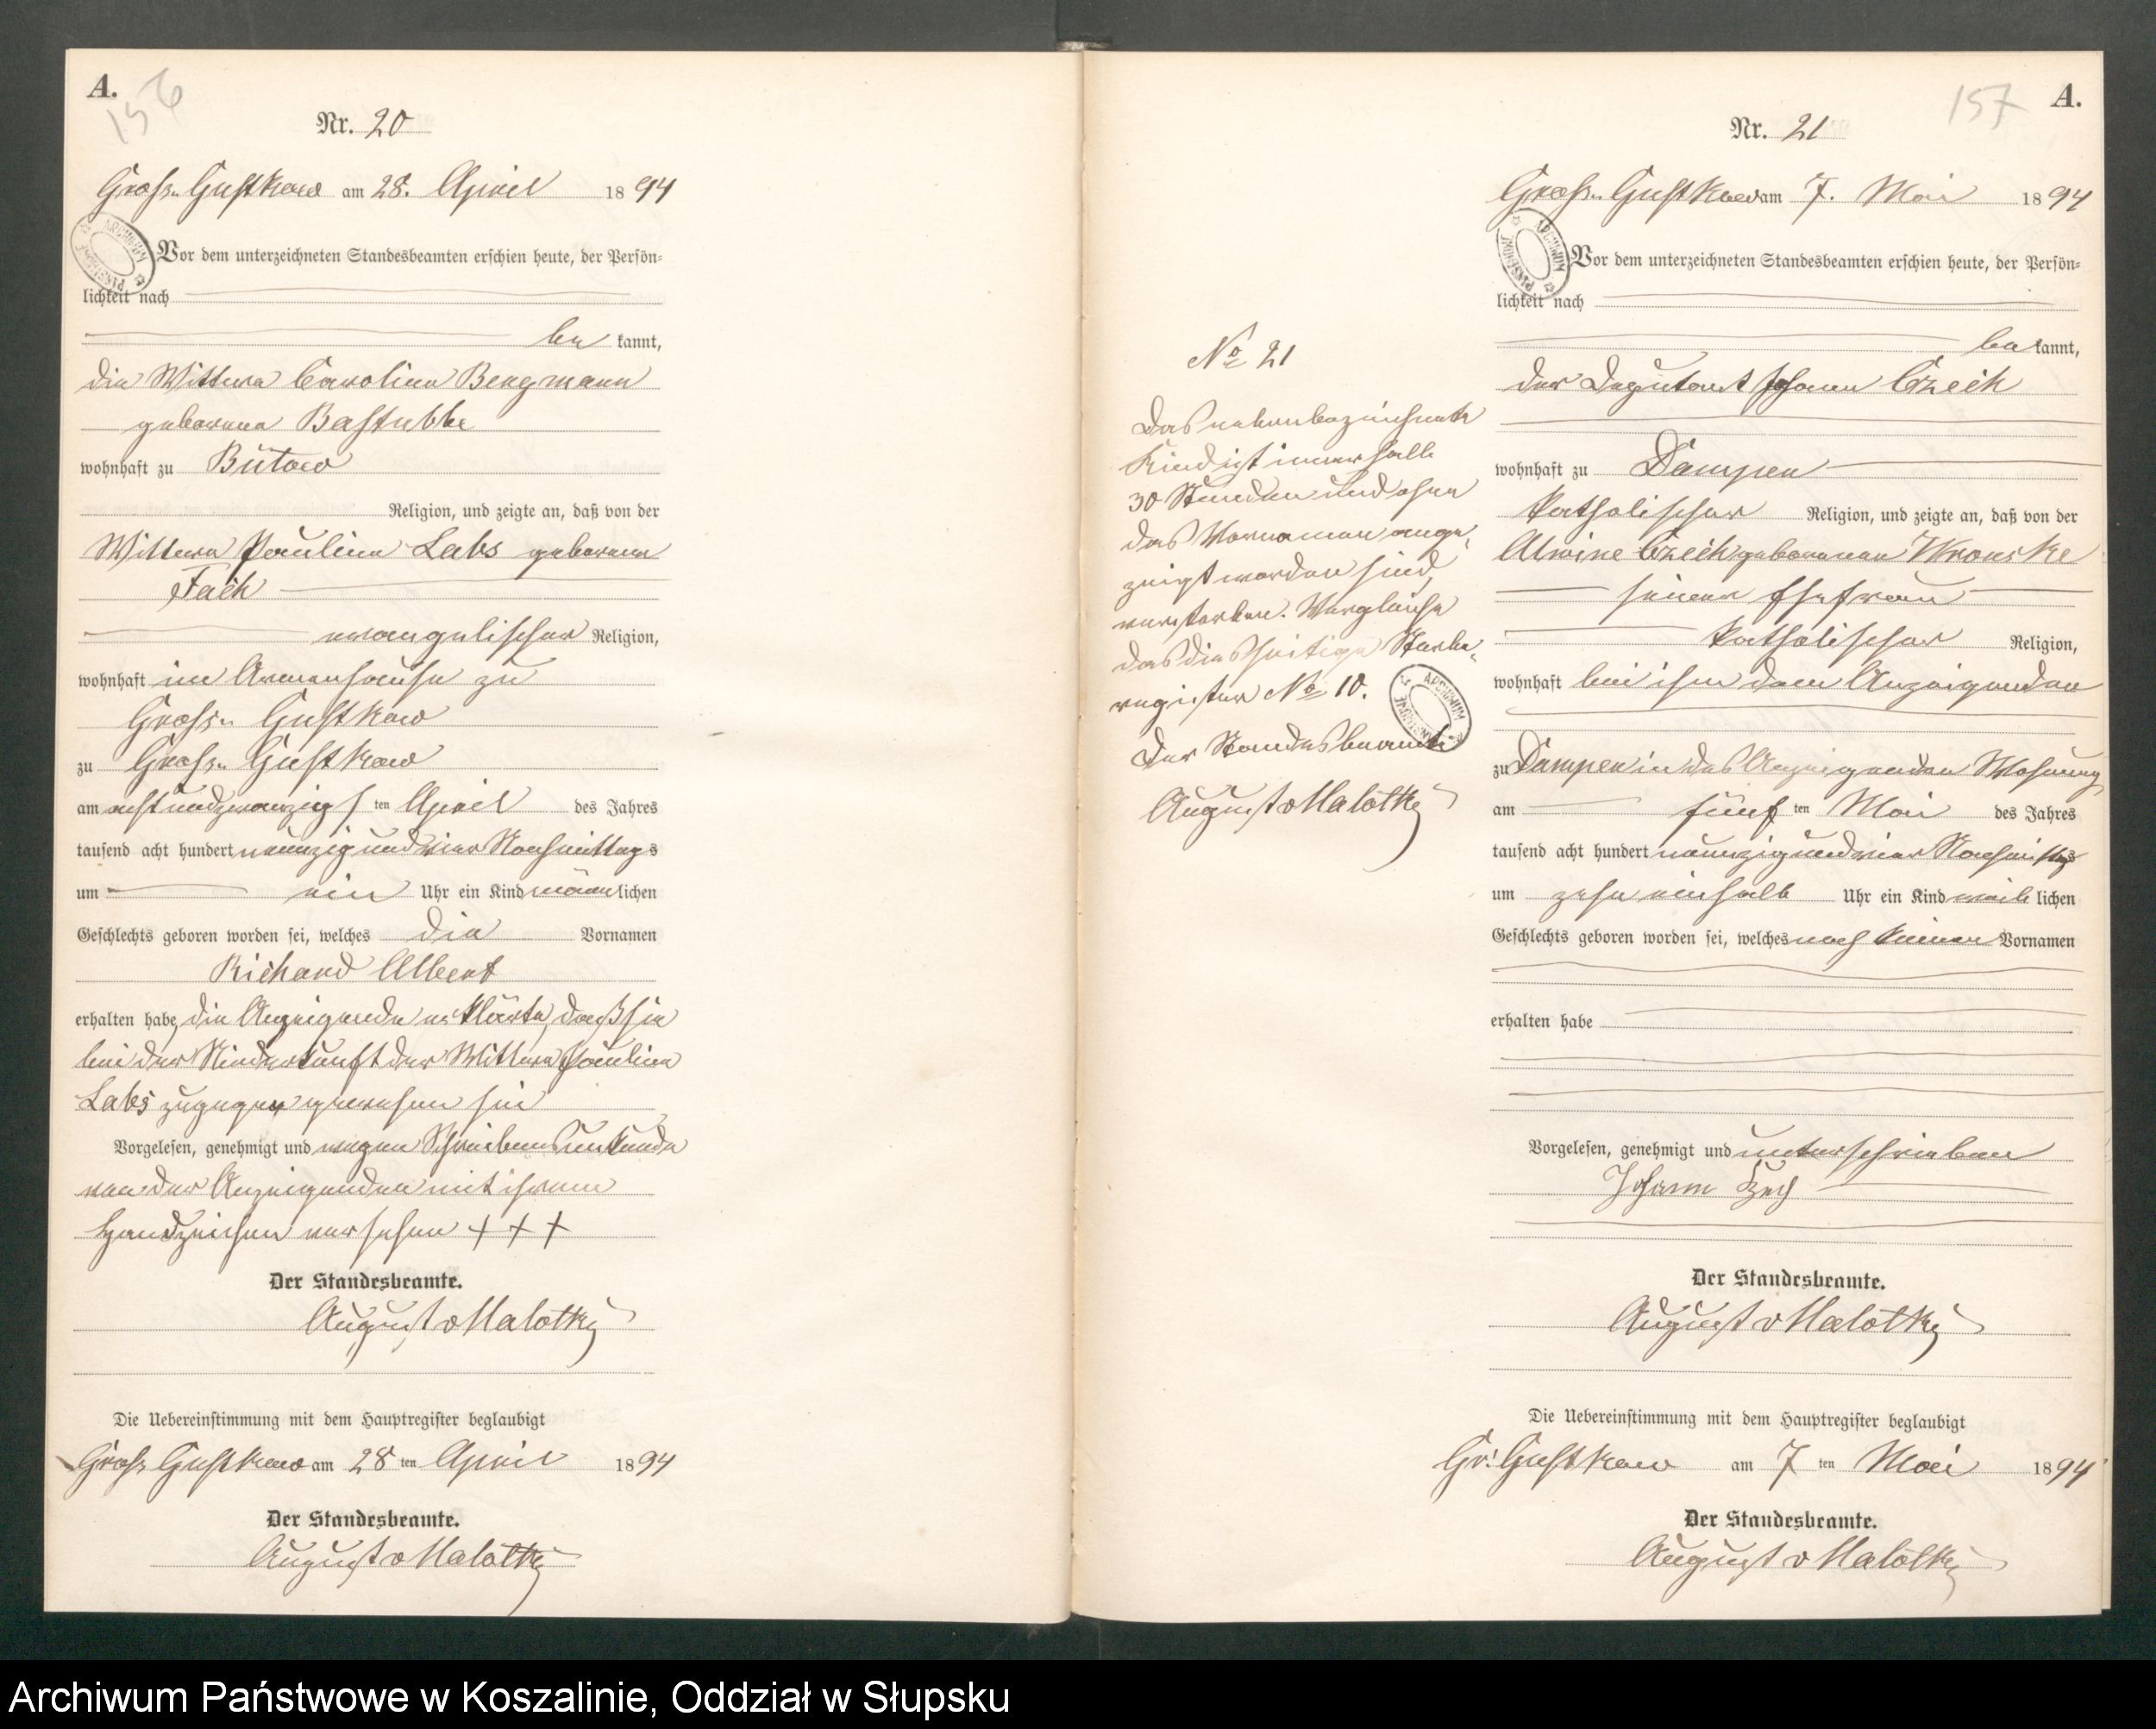 A.
156
Nr. 20
Gross Gustkow am 28. April 1894
ARCHIWUM PAŃSTWOWE
Vor dem unterzeichneten Standesbeamten erschien heute, der Persön-
lichkeit nach
be kannt,
die Wittwe Caroline Bergmann
geborene Bastubbe
wohnhaft zu Bütow
Religion, und zeigte an, daß von der
Wittwe Pauline Labs geborene
Faik
evangelischer Religion,
wohnhaft im Armenhause zu
Gross Gustkow
zu Gross Gustkow
am acht und zwanzigs ten April des Jahres
tausend acht hundert neunzig und vier Nachmittags
um ein Uhr ein Kind männlichen
Geschlechts geboren worden sei, welches die Vornamen
Richard Albert
erhalten habe, die Anzeigende erklärte, daß sie
bei der Niederkunft der Wittwe Pauline
Labs zugegen gewesen sei
Vorgelesen, genehmigt und wegen Schreibensunkunde
von der Anzeigenden mit ihrem
Handzeichen versehen + + +
Der Standesbeamte.
August v Malottky
Die Uebereinstimmung mit dem Hauptregister beglaubigt
Gross Gustkow am 28 ten April 1894
Der Standesbeamte.
August v Malottky
No 21
Das nebenbezeichnete
Kind ist innerhalb
30 Stunden und ohne
das Vornamen ange-
zeigt worden sind,
verstorben. Vergleiche
das diesseitige Sterbe-
register No 10.
ARCHIWUM PAŃSTWOWE
Der Standesbeamte
August v Malottky
157
A.
Nr. 21
Gross Gustkow am 7. Mai 1894
ARCHIWUM PAŃSTWOWE
Vor dem unterzeichneten Standesbeamten erschien heute, der Persön-
lichkeit nach
be kannt,
der Deputant Johann Czech
wohnhaft zu Dampen
katholischer Religion, und zeigte an, daß von der
Alwine Czech geborenen Wronske
seiner Ehefrau
katholischer Religion,
wohnhaft bei ihm dem Anzeigenden
zu Dampen in des Anzeigenden Wohnung
am fünf ten Mai des Jahres
tausend acht hundert neunzig und vier Nachmittags
um zehn einhalb Uhr ein Kind weib lichen
Geschlechts geboren worden sei, welches noch keinen Vornamen
erhalten habe
Vorgelesen, genehmigt und unterschrieben
Johann Czech
Der Standesbeamte.
August v Malottky
Die Uebereinstimmung mit dem Hauptregister beglaubigt
Gr. Gustkow am 7 ten Mai 1894
Der Standesbeamte.
August v Malottky
Archiwum Państwowe w Koszalinie, Oddział w Słupsku